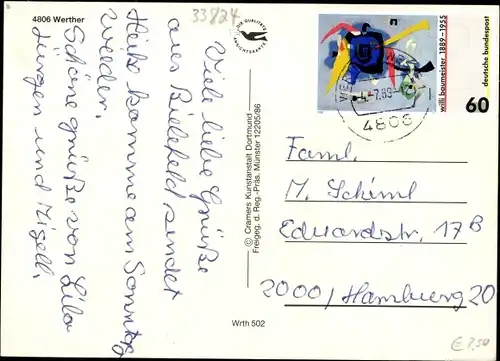 4806 Werther
33824
DIE QUALITÄTS
ANSICHTSKARTE
Viele liebe Grüße
aus Bielefeld sendet
Heik. Komme am Sonntag
wieder.
Schöne grüße von Lila
Jürgen und
© Cramers Kunstanstalt Dortmund
Freigeg. d. Reg.-Präs. Münster 12205/86
Wrth 502
willi baumeister 1889-1955
deutsche bundespost
60
-7.89
4806
Faml.
M. Schiml
Eduardstr. 17B
2000/Hamburg 20
€ 2,50